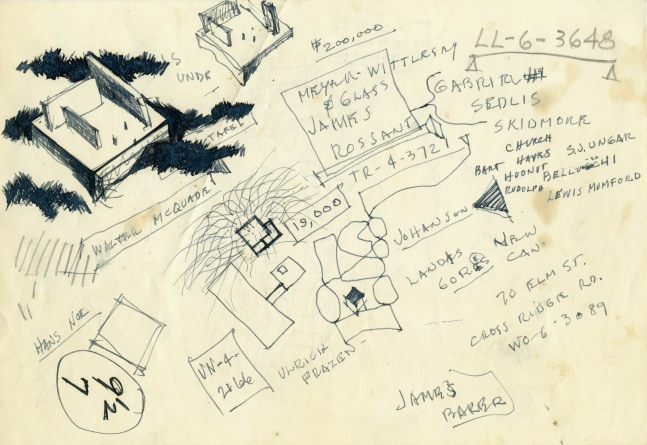 $200,000
LL-6-3648
UNDR
MEYER-WITTLESEY
& GLASS
JAMES
ROSSANT
GABRIEL
SEDLIS
SKIDMORE
CHURCH
BART HAYES
HUDNUT
RUDOLPH
S.J. UNGAR
BELLUSCHI
LEWIS MUMFORD
TR-4-3721
19,000
WALTER MCQUADE
JOHANSON
LANDIS
GORES
NEW
CAN-
70 ELM ST.
CROSS RIDGE RD.
WO-6-3089
HANS NOE
9½
7
UN-4-
ULRICH
FRAZEN-
JAMES
BAKER